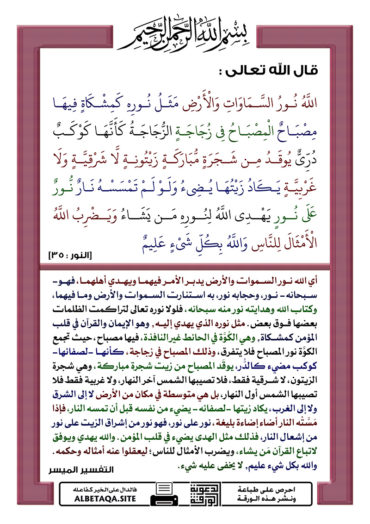 بسم الله الرحمن الرحيم
قال الله تعالى :
اللَّهُ نُورُ السَّمَاوَاتِ وَالْأَرْضِ مَثَلُ نُورِهِ كَمِشْكَاةٍ فِيهَا
مِصْبَاحٌ الْمِصْبَاحُ فِي زُجَاجَةٍ الزُّجَاجَةُ كَأَنَّهَا كَوْكَبٌ
دُرِّيٌّ يُوقَدُ مِن شَجَرَةٍ مُّبَارَكَةٍ زَيْتُونَةٍ لَّا شَرْقِيَّةٍ وَلَا
غَرْبِيَّةٍ يَكَادُ زَيْتُهَا يُضِيءُ وَلَوْ لَمْ تَمْسَسْهُ نَارٌ نُّورٌ
عَلَىٰ نُورٍ يَهْدِي اللَّهُ لِنُورِهِ مَن يَشَاءُ وَيَضْرِبُ اللَّهُ
الْأَمْثَالَ لِلنَّاسِ وَاللَّهُ بِكُلِّ شَيْءٍ عَلِيمٌ
[النور : ٣٥]
أي الله نور السموات والأرض يدبر الأمر فيهما ويهدي أهلهما، فهو -
سبحانه - نور، وحجابه نور، به استنارت السموات والأرض وما فيهما،
وكتاب الله وهدايته نور منه سبحانه، فلولا نوره تعالى لتراكمت الظلمات
بعضها فوق بعض. مثل نوره الذي يهدي إليه, وهو الإيمان والقرآن في قلب
المؤمن كمشكاة, وهي الكُوَّة في الحائط غير النافذة، فيها مصباح، حيث تجمع
الكوَّة نور المصباح فلا يتفرق، وذلك المصباح في زجاجة، كأنها -لصفائها-
كوكب مضيء كالدُّر، يوقَد المصباح من زيت شجرة مباركة, وهي شجرة
الزيتون، لا شرقية فقط، فلا تصيبها الشمس آخر النهار، ولا غربية فقط فلا
تصيبها الشمس أول النهار، بل هي متوسطة في مكان من الأرض لا إلى الشرق
ولا إلى الغرب، يكاد زيتها -لصفائه- يضيء من نفسه قبل أن تمسه النار، فإذا
مَسَّتْه النار أضاء إضاءة بليغة، نور على نور، فهو نور من إشراق الزيت على نور
من إشعال النار، فذلك مثل الهدى يضيء في قلب المؤمن. والله يهدي ويوفق
لاتباع القرآن مَن يشاء، ويضرب الأمثال للناس؛ ليعقلوا عنه أمثاله وحكمه.
والله بكل شيء عليم, لا يخفى عليه شيء.
التفسير الميسر
احرص على طباعة
ونشر هذه الورقة
الورقة الدعوية
فالدال على الخير كفاعله
ALBETAQA.SITE